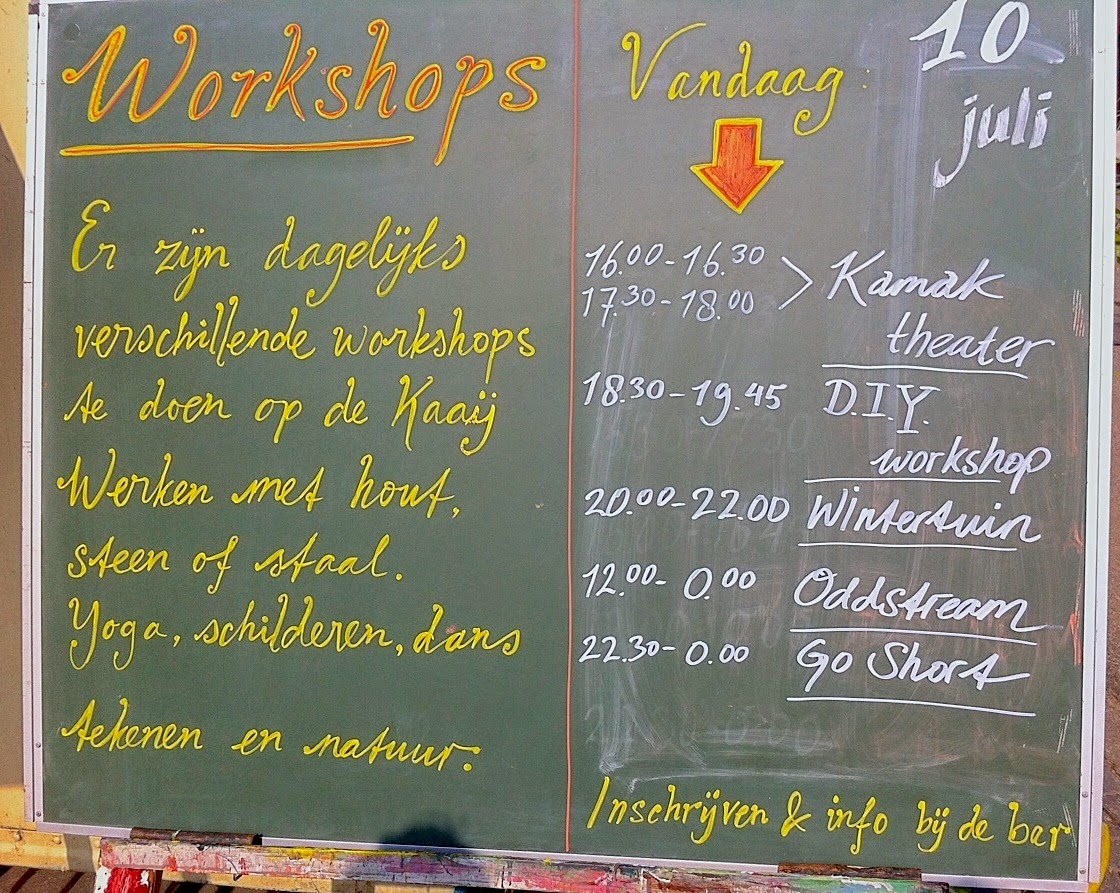 Workshops
Er zijn dagelijks
verschillende workshops
te doen op de Kaaij
Werken met hout,
steen of staal.
Yoga, schilderen, dans
tekenen en natuur.
Vandaag:
10
juli
16.00-16.30
17.30-18.00 > Kamak
theater
18.30-19.45 D.I.Y.
workshop
20.00-22.00 Wintertuin
12.00-0.00 Oddstream
22.30-0.00 Go Short
Inschrijven & info bij de bar